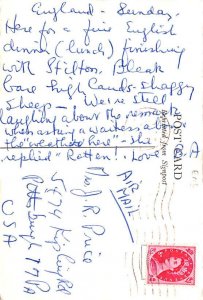 England - Sunday,
Here for a fine English
dinner (lunch) finishing
with Stilton. Bleak
bare high lands - shaggy
sheep - We're still
laughing about the remark
when asking a waitress about
the "weather here" - she
replied "Rotten"! Love
A
POSTCARD
AIR
MAIL
Mrs. J. R. Price
5674
Pittsburgh 17 Pa
USA